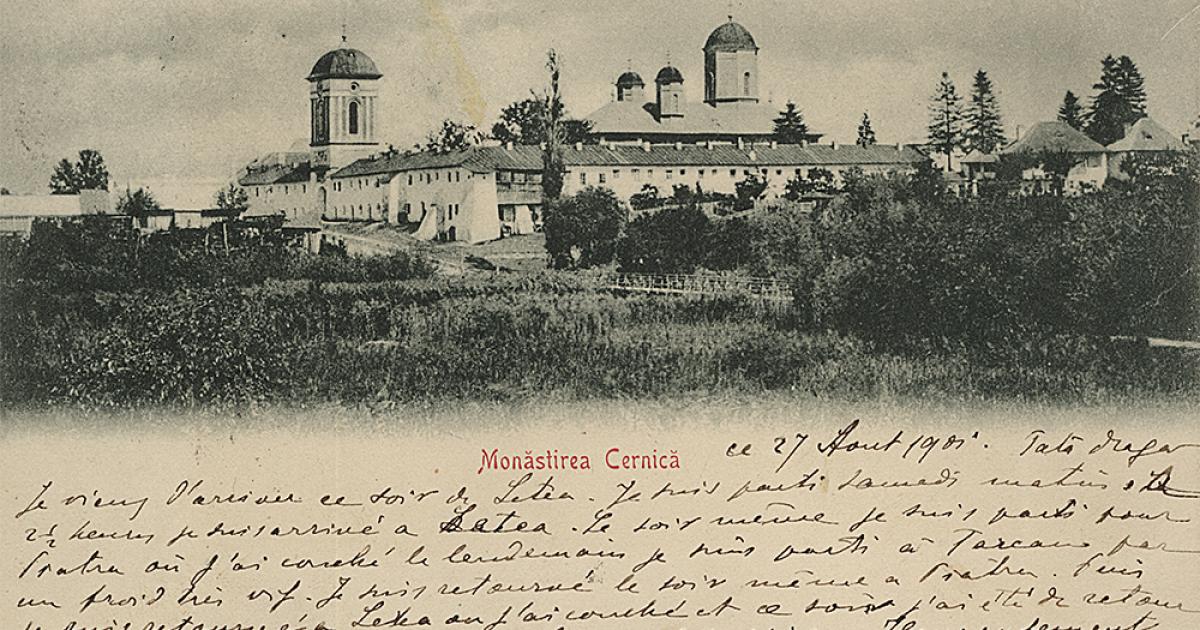 Monăstirea Cernică
ce 27 Aout 1901. Tată dragă
Je viens d'arriver ce soir de Letea. Je suis parti samedi matin
heures je suis arrivé a Letea. Le soir même je suis parti pour
Piatra où j'ai couché le lendemain je suis parti à Tarcau par
un froid très vif. Je suis retourné le soir même a Piatra. Puis
je suis retourné à Letea ou j'ai couché et ce soir j'ai été de retour